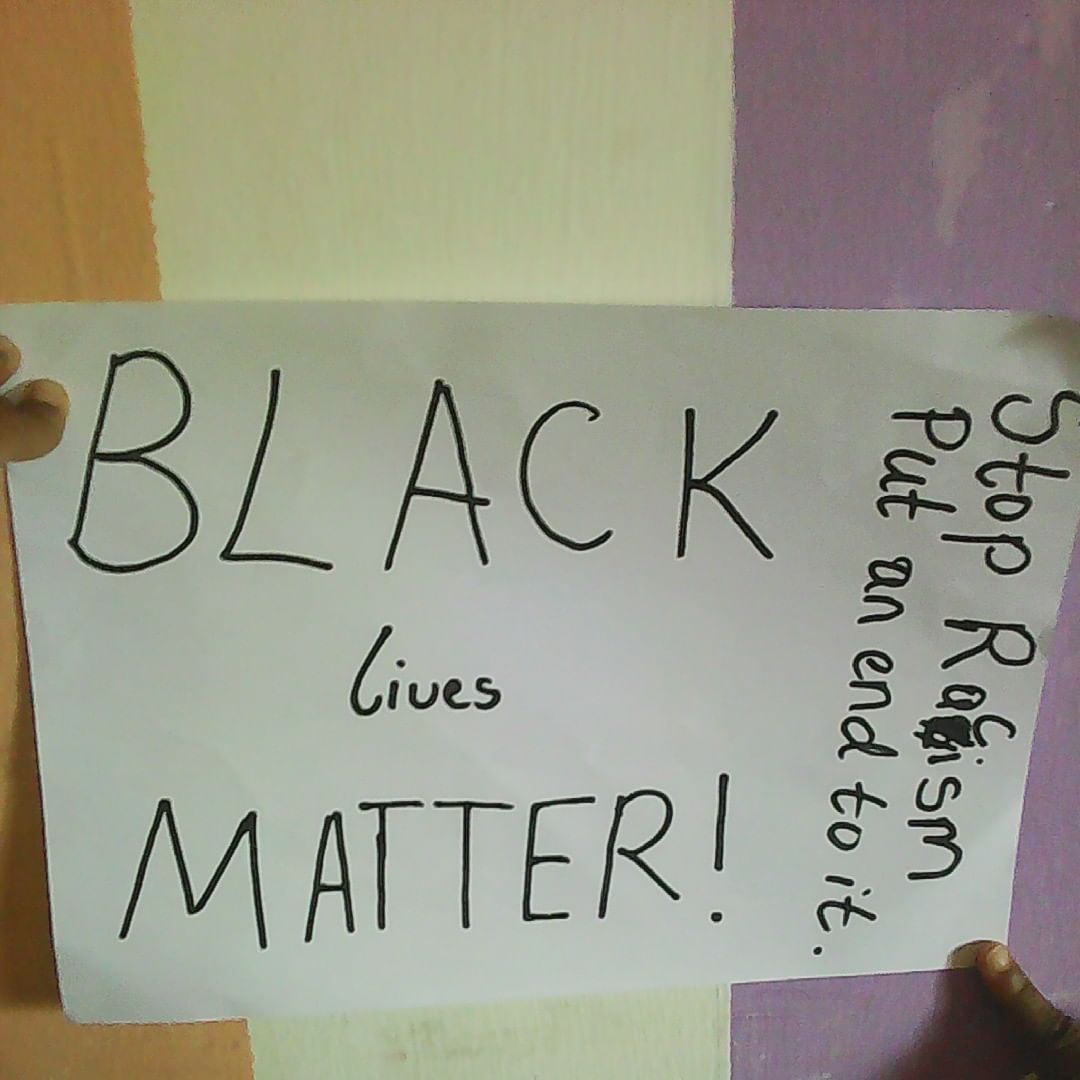 BLACK
lives
MATTER!
Stop Racism
Put an end to it.